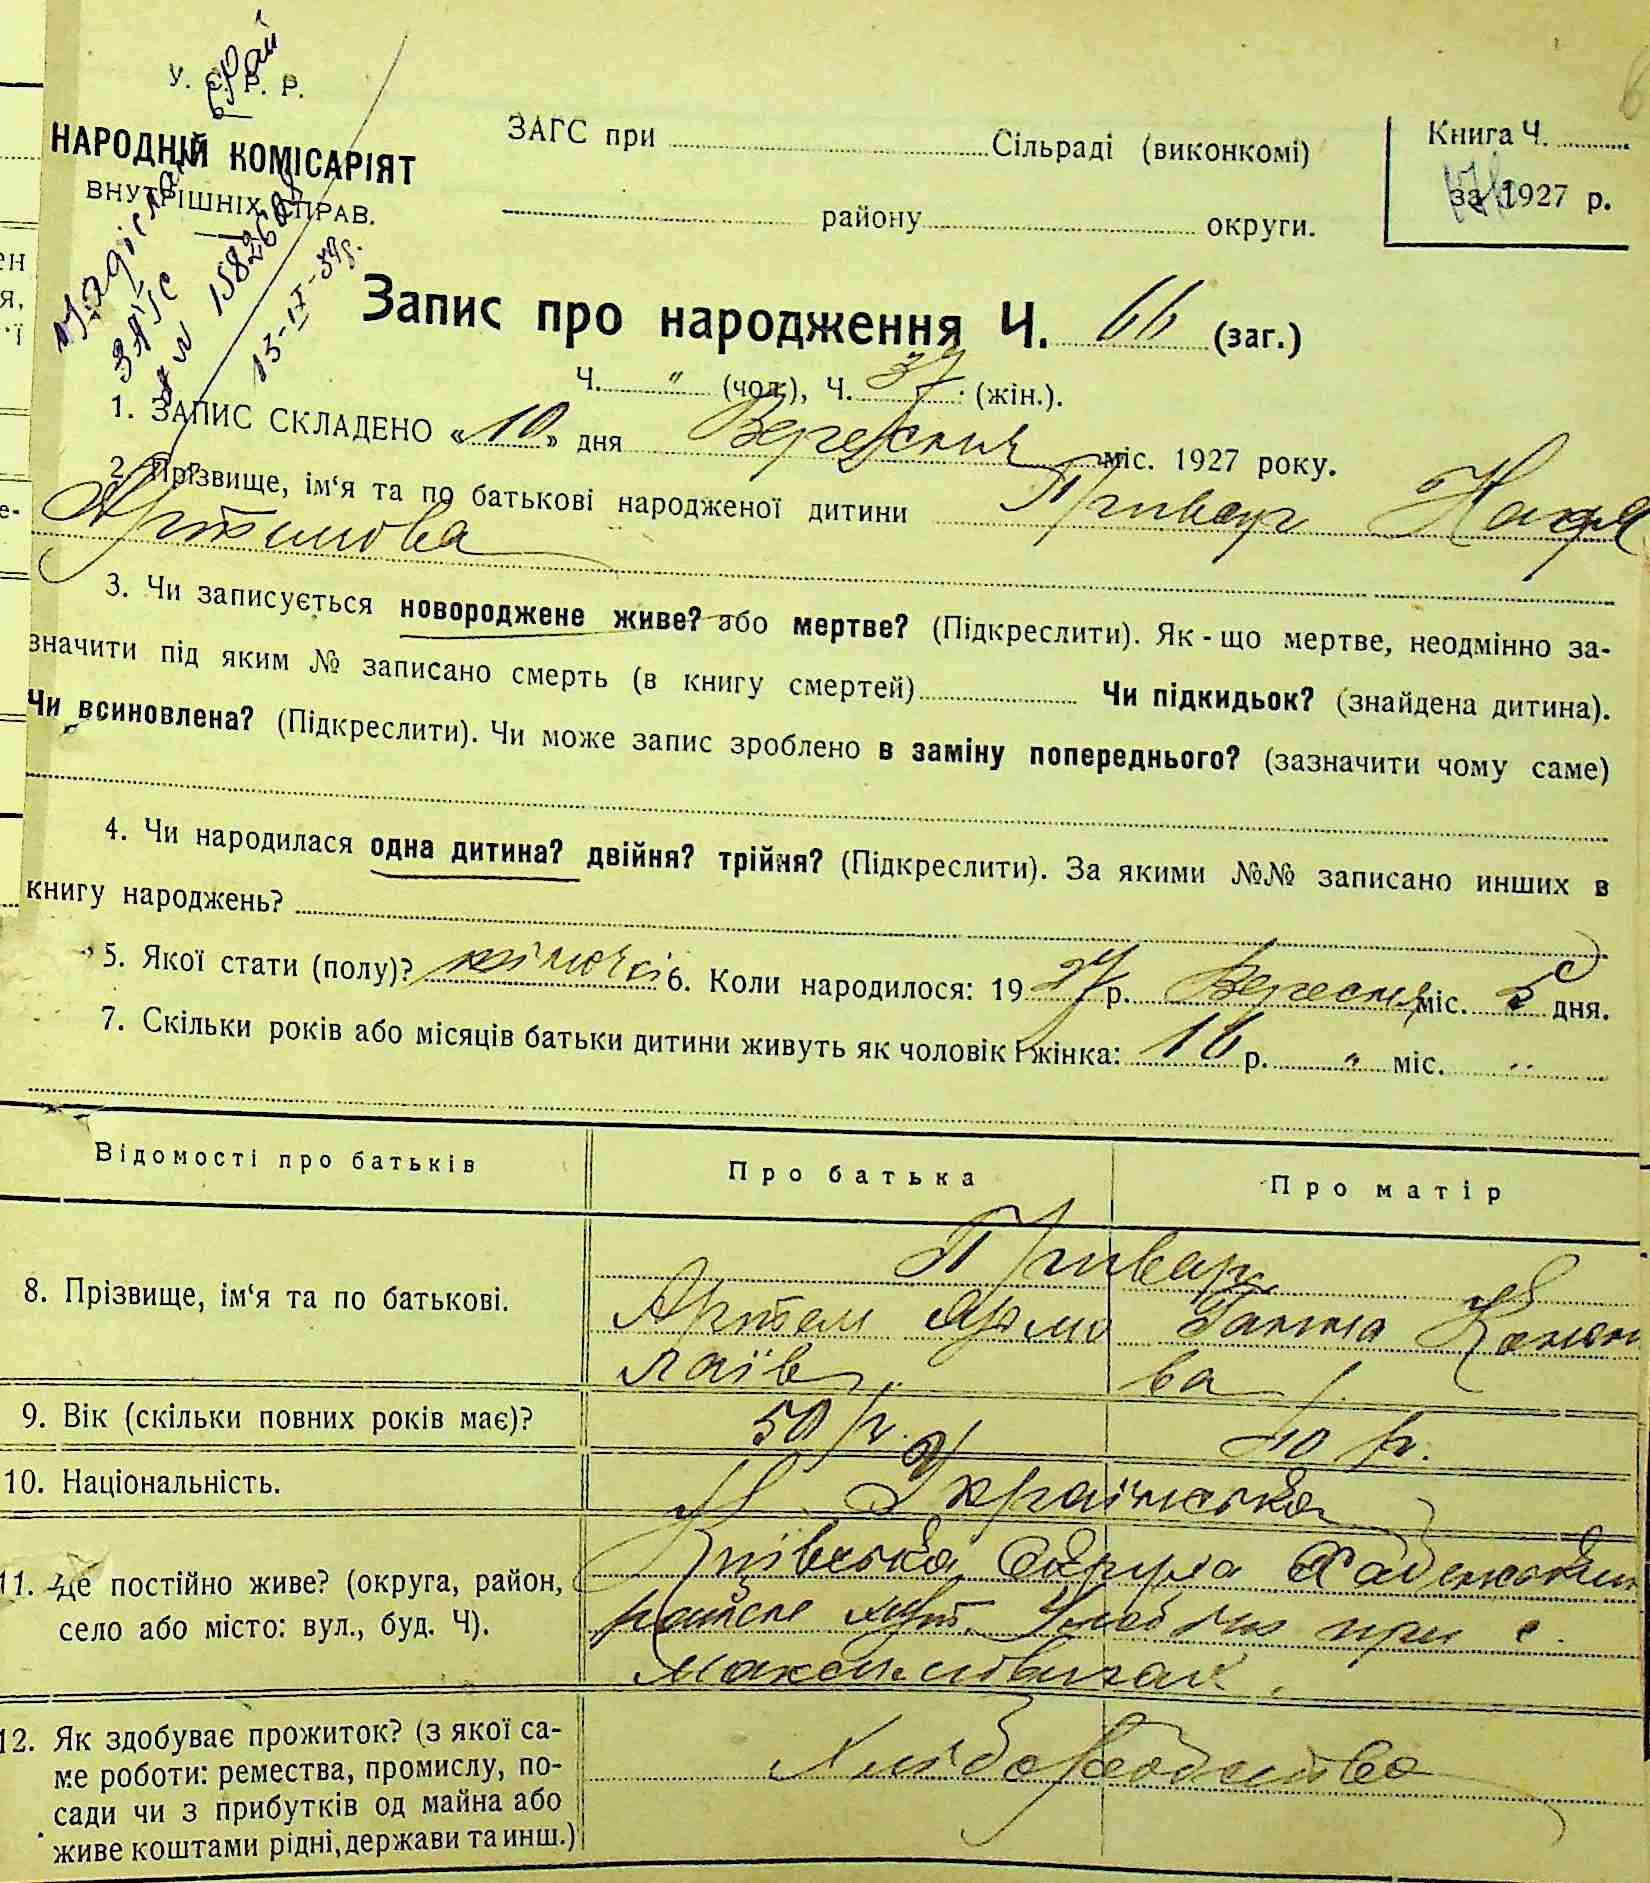 У. С. Р. Р.
НАРОДНІЙ КОМІСАРІЯТ
ВНУТРІШНІХ СПРАВ.
ЗАГС при Сільраді (виконкомі)
району округи.
Книга Ч.
за 1927 р.
ЗАГС
13-IX-39р.
Запис про народження Ч. 66 (заг.)
Ч. " (чол.), Ч. 37 (жін.).
1. ЗАПИС СКЛАДЕНО «10» дня Вересня міс. 1927 року.
2. Прізвище, ім‘я та по батькові народженої дитини Привар
Артемова
3. Чи записується новороджене живе? або мертве? (Підкреслити). Як-що мертве, неодмінно за-
значити під яким № записано смерть (в книгу смертей) Чи підкидьок? (знайдена дитина).
Чи всиновлена? (Підкреслити). Чи може запис зроблено в заміну попереднього? (зазначити чому саме)
4. Чи народилася одна дитина? двійня? трійня? (Підкреслити). За якими №№ записано инших в
книгу народжень?
5. Якої стати (полу)? жіночої 6. Коли народилося: 1927 р. Вересня міс. 5 дня.
7. Скільки років або місяців батьки дитини живуть як чоловік і жінка: 16 р. " міс. "
Відомості про батьків Про батька Про матір
8. Прізвище, ім‘я та по батькові.
Привар
Артем Ганна
ва
9. Вік (скільки повних років має)? 50 р. 40 р.
10. Національність. Українська
11. Де постійно живе? (округа, район,
село або місто: вул., буд. Ч).
Київська Округа Хабенський
хут. при с.
Максимовичах.
12. Як здобуває прожиток? (з якої са-
ме роботи: ремества, промислу, по-
сади чи з прибутків од майна або
живе коштами рідні, держави та инш.)
Хліборобство